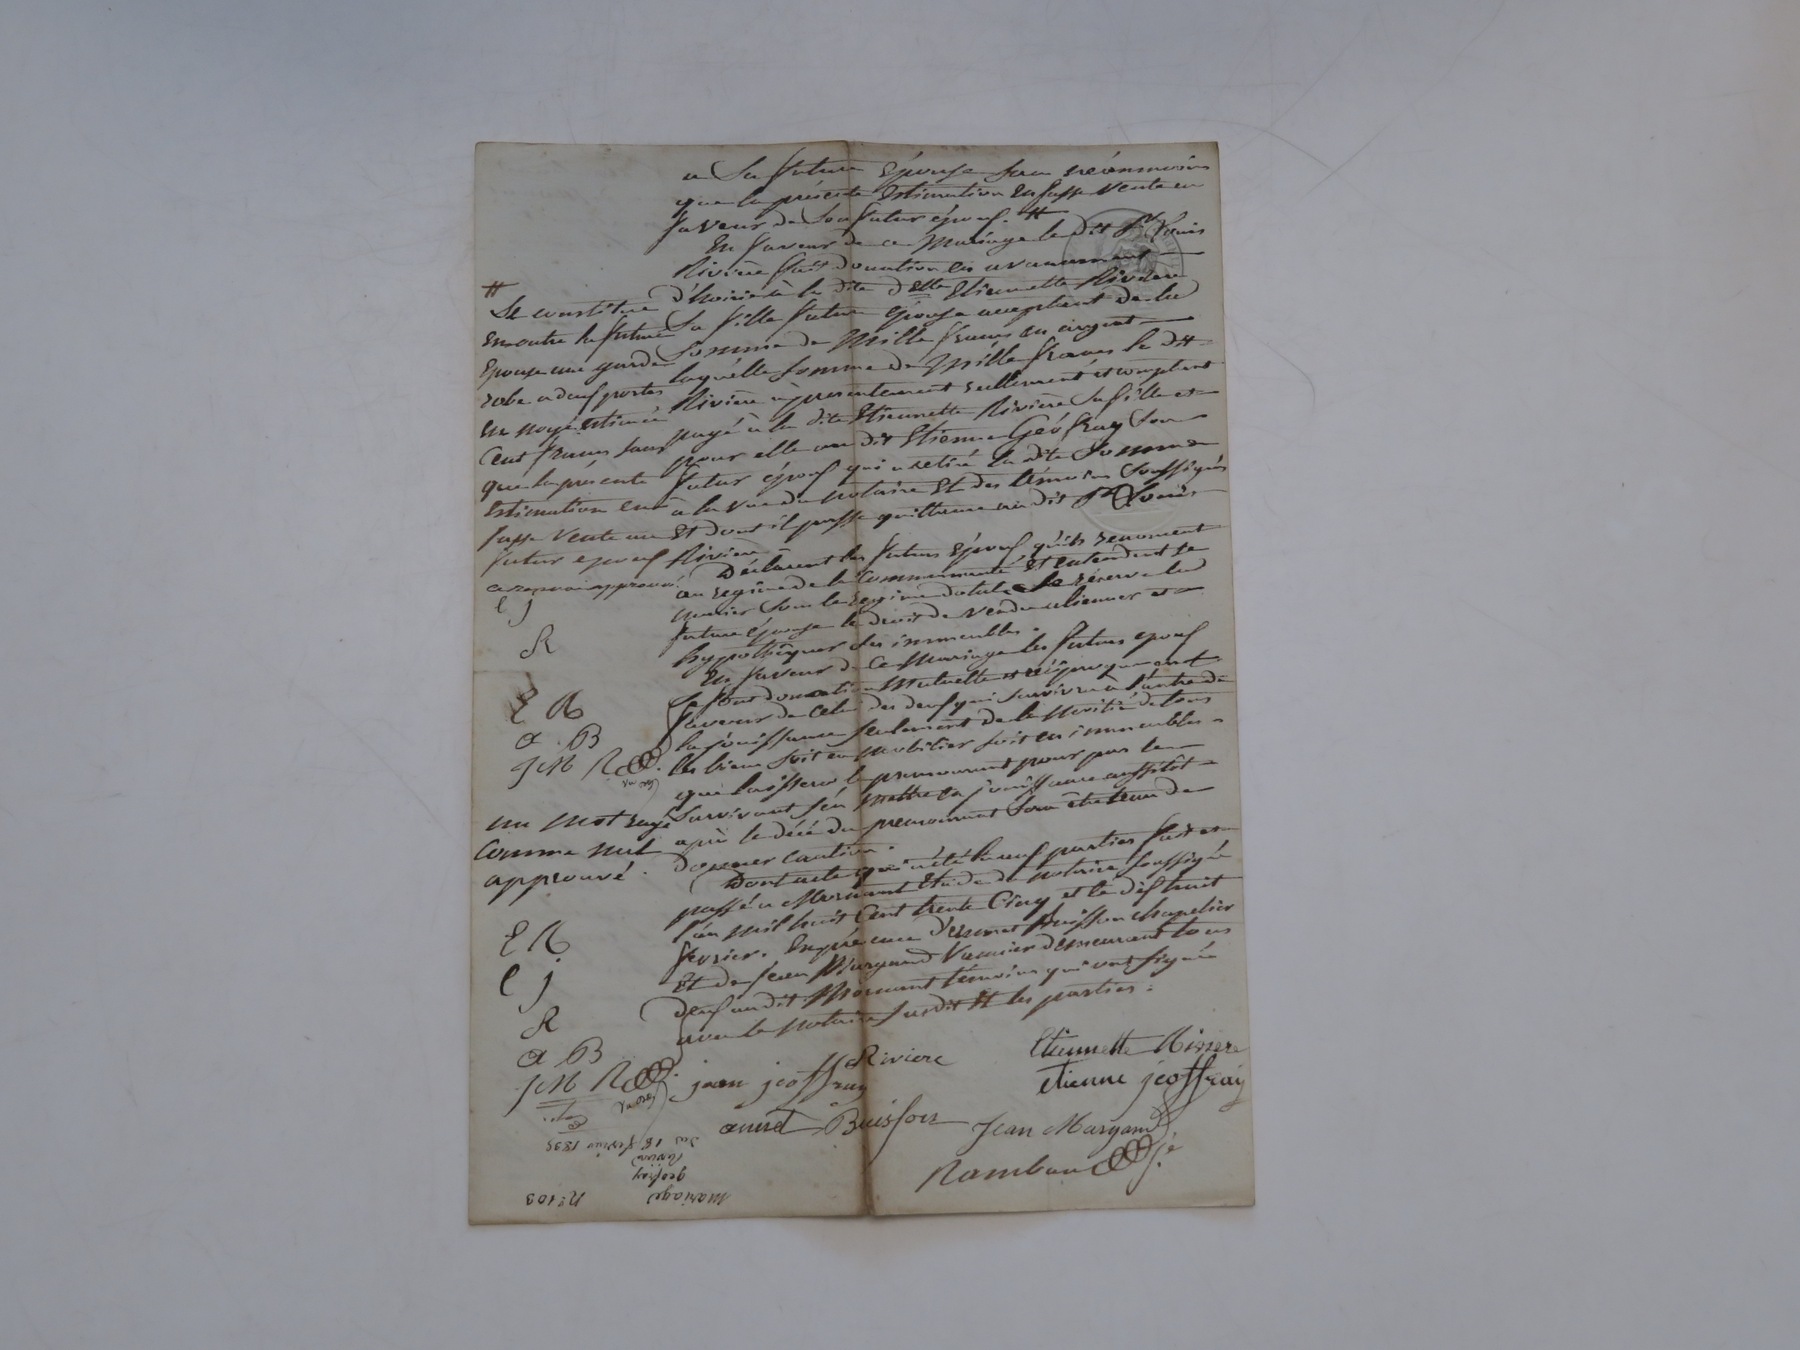 a la future Epouse sans néanmoins
que la présente Estimation En fasse Vente en
faveur de son futur époux. #
En faveur de ce Mariage le dit Sr Louis
Rivière fait donation en avancement
d'hoirie à la dite dlle Etiennette Rivière
Sa fille future épouse acceptant de la
Somme de Mille francs en argent
laquelle somme de Mille francs le dit
Rivière a présentement reellement et comptant
payé à la dite Etiennette Rivière Sa fille et
pour elle au dit Etienne Géofray Son
futur époux qui a retiré la dite Somme
à la vue du notaire Et des témoins Soussignés
Et dont il passe quittance au dit Sr Louis
Rivière.
Déclarent les futurs Epoux qu'ils renoncent
au regime de la Communauté Et entendent se
marier Sous le regime dotal. Se réserve la
future épouse le droit de Vendre aliener et
hypothéquer ses immeubles.
En faveur de Ce Mariage les futurs epoux
Se font donation Mutuelle et réciproque en
faveur de Celui des deux qui Survivra à l'autre de
la jouissance Seulement de la Moitié de tous
les biens Soit en Mobilier Soit en immeubles
que laissera le premourant pour par le
Survivant s'en Mettre en jouissance aussitôt
après le décé du premourant Sans être tenu de
donner Caution.
Dont acte qui a été lu aux parties fait et
passé a Mornant Etude du notaire Soussigné
l'an Mil huit Cent trente Cinq et le dix huit
fevrier. En présence d'ennet Buisson chapelier
Et de Jean Margand Vannier demeurant tous
deux au dit Mornant témoins qui ont signé
avec le notaire susdit Et les parties.
#
Se constitue
en outre la future
Epouse une garde
robe a deux portes
en noyé estimée
Cent francs sans
que la présente
Estimation en
fasse Vente au
futur epoux
ce renvoi approuvé.
E J
R
E R
a. B
J M R
un Mot rayé
Comme nul
approuvé.
E R
E J
R
a B
J M R
Rivière
Etiennette Riviere
jean jeoffray
etienne jeoffray
ennet Buisson
Jean Margand
Rambau
N° 103
Mariage
geofray
Rivière
Du 18 fevrier 1835